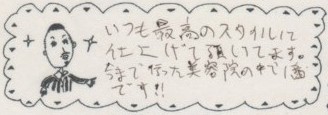 いつも最高のスタイルに
仕上げて頂いてます。
今まで行った美容院の中で1番
です!!